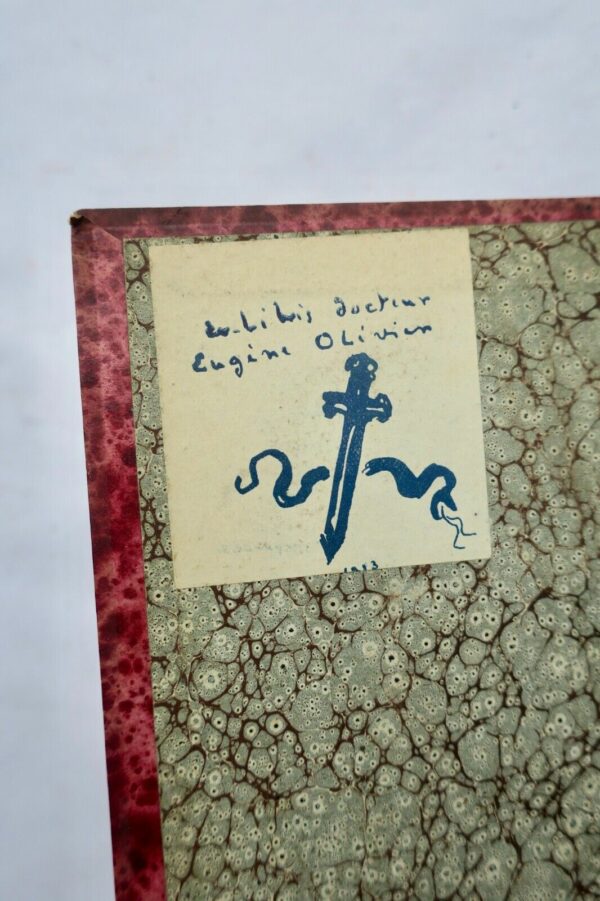 ex-libris docteur
Eugène Olivier
1913